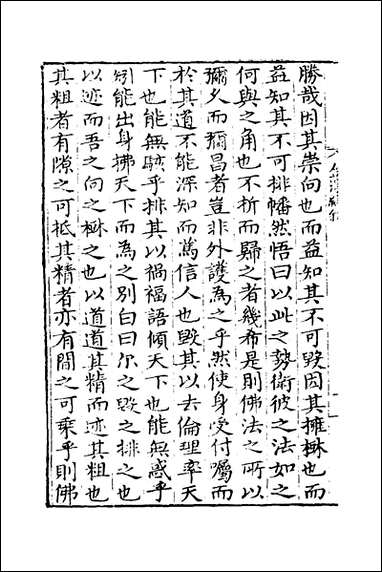 勝哉因其崇向也而益知其不可毀因其擁楙也而
益知其不可排幡然悟曰以此之勢衛彼之法如之
何與之角也不折而歸之者幾希是則佛法之所以
彌久而彌昌者豈非外護為之乎然使身受付囑而
於其道不能深知而篤信人也毀其以去倫理率天
下也能無駭乎排其以禍福語傾天下也能無惑乎
能出身拂天下而為之別白曰尔之毀之排之也
以迹而吾之向之楙之也以道道其精而迹其粗也
其粗者有隙之可抵其精者亦有間之可乘乎則佛